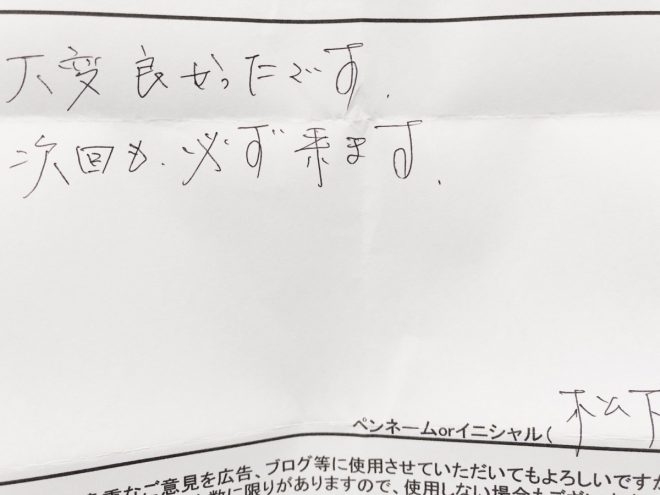 大変良かったです.
次回も.必ず来ます.
ペンネームorイニシャル( 松下
重なご意見を広告、ブログ等に使用させていただいてもよろしいですか
数に限りがありますので、使用しない場合もござい